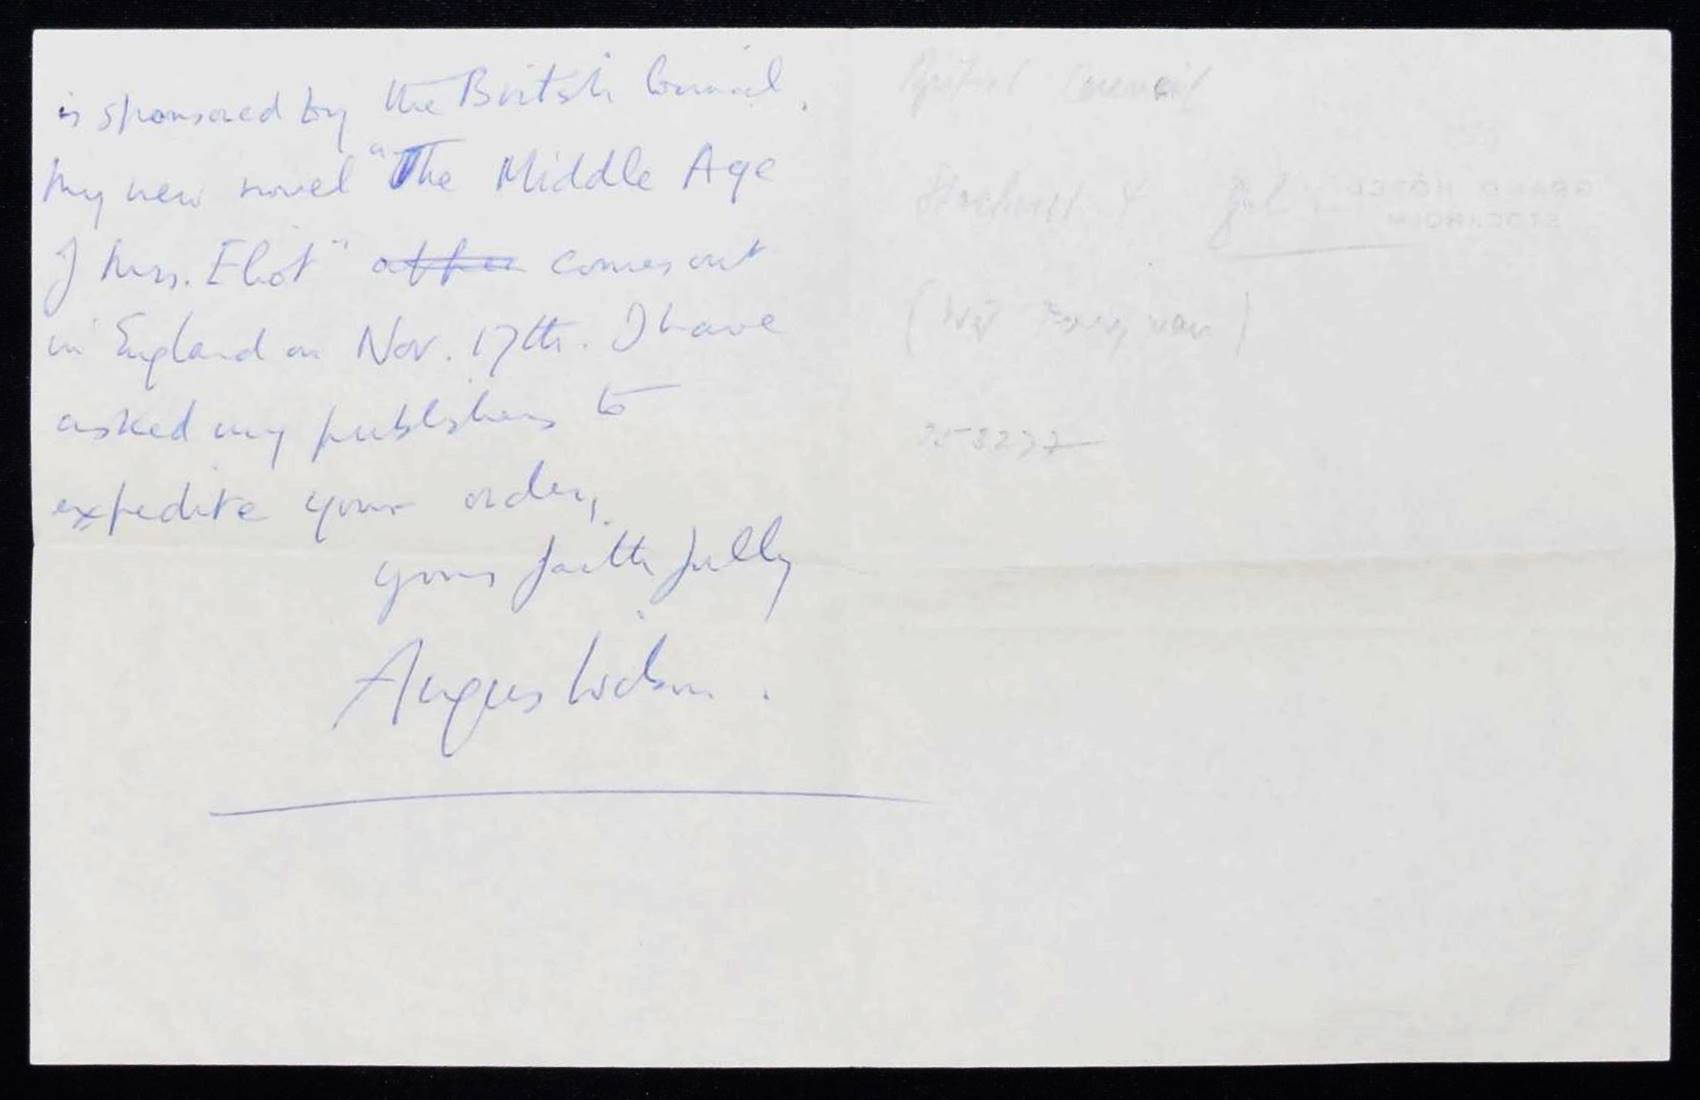 is sponsored by the British Council.
My new novel "The Middle Age
of Mrs. Eliot" comes out
in England on Nov. 17th. I have
asked my publishers to
expedite your order,
yours faithfully
Angus Wilson.
British Council
GRAND HÔTEL
STOCKHOLM